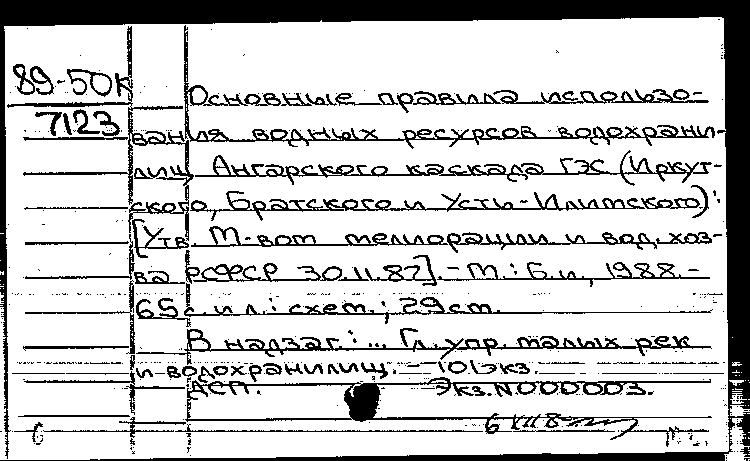 89-50К
7123
Основные правила использо-
вания водных ресурсов водохрани-
лищ Ангарского каскада ГЭС (Иркут-
ского, Братского и Усть-Илимского):
[Утв. М-вом мелиорации и вод. хоз-
ва РСФСР 30.11.87]. - М.: Б.и., 1988. -
65с. ил.: схем.; 29см.
В надзаг.: ... Гл. упр. малых рек
и водохранилищ. - 101экз.
ДСП. Экз. N000003.
6 XII 8
6